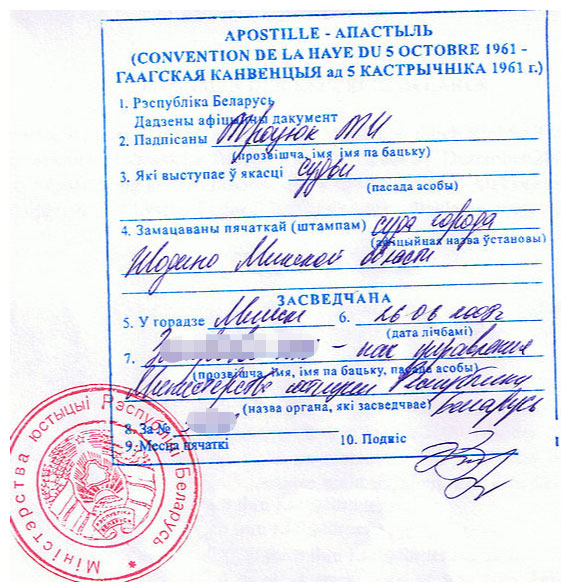 APOSTILLE - АПАСТЫЛЬ
(CONVENTION DE LA HAYE DU 5 OCTOBRE 1961 -
ГААГСКАЯ КАНВЕНЦЫЯ ад 5 КАСТРЫЧНІКА 1961 г.)
1. Рэспубліка Беларусь
Дадзены афіцыйны дакумент
2. Падпісаны
(прозвішча, імя, імя па бацьку)
3. Які выступае ў якасці судьи
(пасада асобы)
4. Замацаваны пячаткай (штампам) суда города
(афіцыйная назва ўстановы)
Жодино Минской области
ЗАСВЕДЧАНА
5. У горадзе Минск 6.
(дата лічбамі)
7. - нач управления
(прозвішча, імя, імя па бацьку, пасада асобы)
Министерства юстиции Республики
(назва органа, які засведчвае) Беларусь
8. За №
9. Месца пячаткі 10. Подпіс
Міністэрства юстыцыі Рэспублікі Беларусь